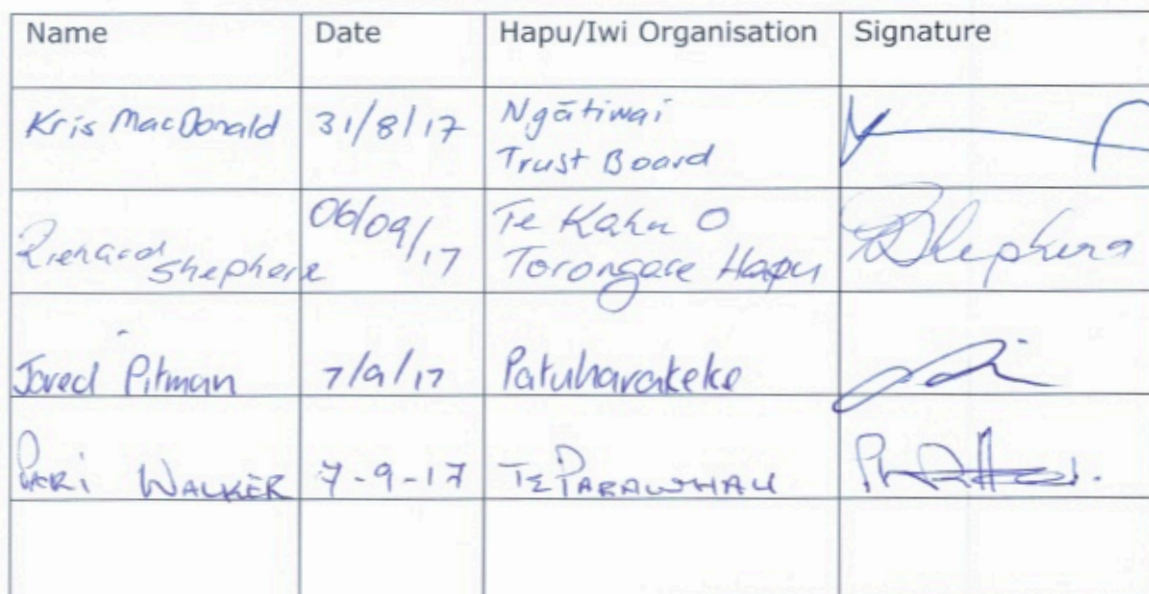 Name Date Hapu/Iwi Organisation Signature
Kris MacDonald 31/8/17 Ngātiwai
Trust Board
Richard 06/09/17 Te Kahu O
Shepherd Torongare Hapu
Jared Pitman 7/9/17 Patuharakeke
Pari WALKER 7-9-17 TE PARAWHAU